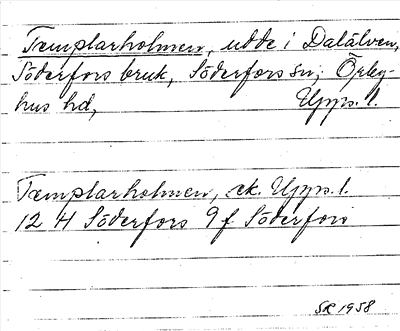 Templarholmen, udde i Dalälven,
Söderfors bruk, Söderfors sn; Örby-
hus hd, Upps. l.
Templarholmen, ek. Upps. l.
12 H Söderfors 9 f Söderfors
SR 1958